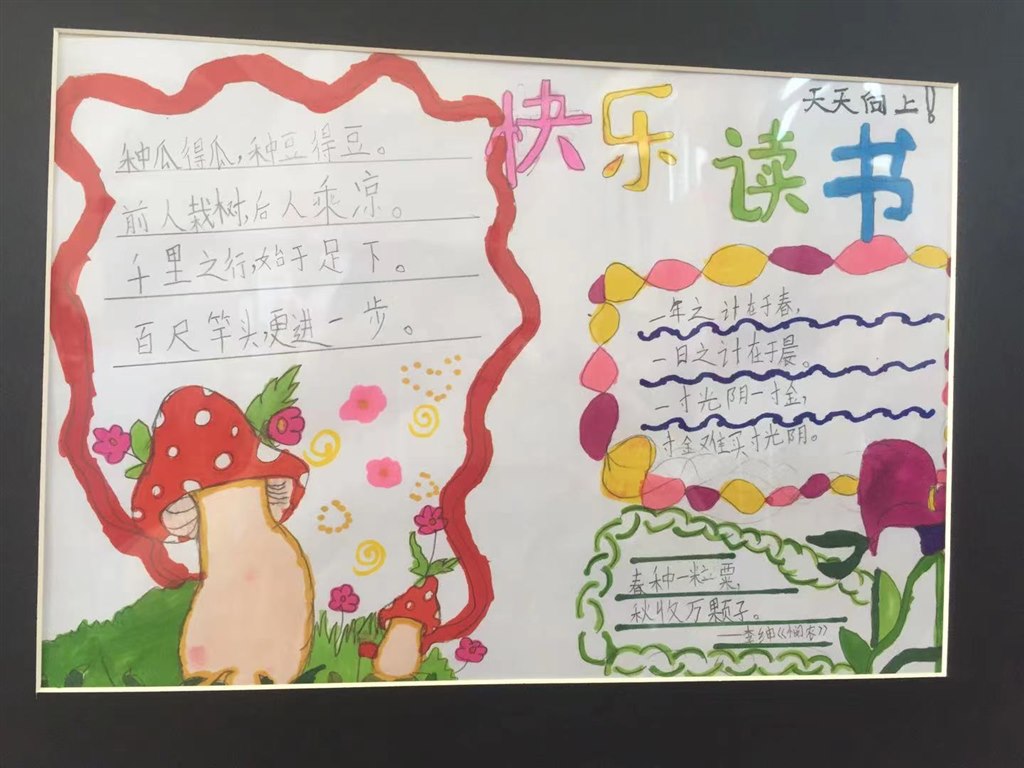 快乐读书
天天向上!
种瓜得瓜,种豆得豆。
前人栽树,后人乘凉。
千里之行,始于足下。
百尺竿头,更进一步。
一年之计在于春,
一日之计在于晨。
一寸光阴一寸金,
寸金难买寸光阴。
春种一粒粟,
秋收万颗子。
——李绅《悯农》